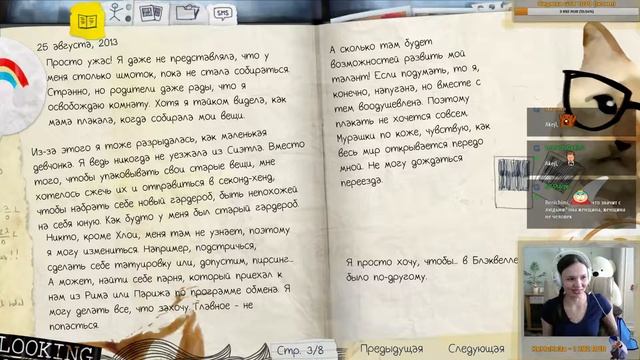 SMS
25 августа, 2013
Просто ужас! Я даже не представляла, что у
меня столько шмоток, пока не стала собираться.
Странно, но родители даже рады, что я
освобождаю комнату. Хотя я тайком видела, как
мама плакала, когда собирала мои вещи.
Из-за этого я тоже разрыдалась, как маленькая
девчонка. Я ведь никогда не уезжала из Сиэтла. Вместо
того, чтобы упаковывать свои старые вещи, мне
хотелось сжечь их и отправиться в секонд-хенд,
чтобы набрать себе новый гардероб, быть непохожей
на себя юную. Как будто у меня был старый гардероб.
Никто, кроме Хлои, меня там не узнает, поэтому
я могу измениться. Например, подстричься,
сделать себе татуировку или, допустим, пирсинг...
А может, найти себе парня, который приехал к
нам из Рима или Парижа по программе обмена. Я
могу делать все, что захочу. Главное - не
попасться.
А сколько там будет
возможностей развить мой
талант! Если подумать, то я,
конечно, напугана, но вместе с
тем воодушевлена. Поэтому
плакать не хочется совсем.
Мурашки по коже, чувствую, как
весь мир открывается передо
мной. Не могу дождаться
переезда.
Я просто хочу, чтобы... в Блэквелле
было по-другому.
LOOKING
Стр. 3/8
Предыдущая
Следующая